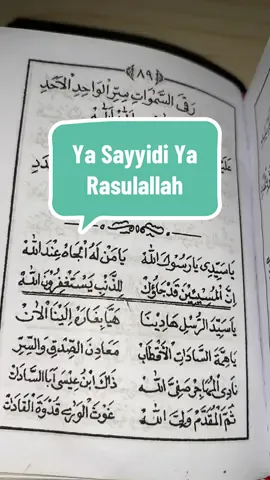 ٨٩
رَقَى السَّمٰوَاتِ سِرِّ الْوَاحِدِ الْأَحَدِ
Ya Sayyidi Ya
Rasulallah
يَاسَيِّدِى يَارَسُوْلَ اللهْ يَامَنْ لَهُ الْجَاهْ عِنْدَ اللهْ
اِنَّ الْمُسِيْئِيْنَ قَدْ جَاؤُكْ لِلذَّنْبِ يَسْتَغْفِرُوْنَ اللهْ
يَاسَيِّدَ الرُّسْلِ هَادِيْنَا هَيَّا بِغَارَهْ اِلَيْنَا الْآنْ
يَاهِمَّةَ السَّادَاتِ الْأَقْطَابْ مَعَادِنَ الصِّدْقِ وَالسِّرِّ
نَادِى الْمُهَاجِرْ صَفِيَّ اللهْ ذَاكَ ابْنُ عِيْسَى اَبَا السَّادَاتْ
ثُمَّ الْمُقَدَّمْ وَلِيَّ اللهْ غَوْثَ الْوَرَى قُدْوَةَ الْقَادَاتْ